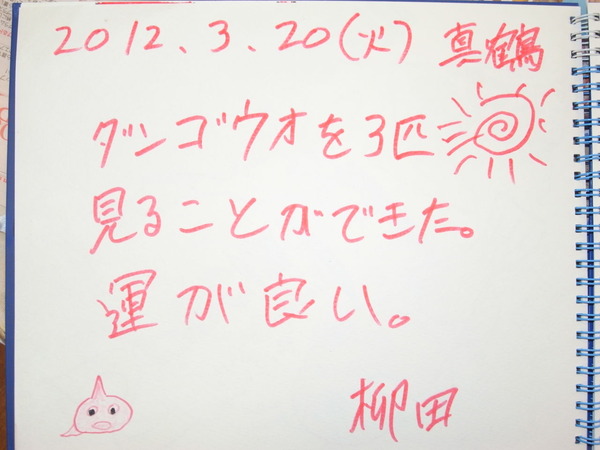 2012.3.20(火) 真鶴
ダンゴウオを3匹
見ることができた。
運が良い。
柳田